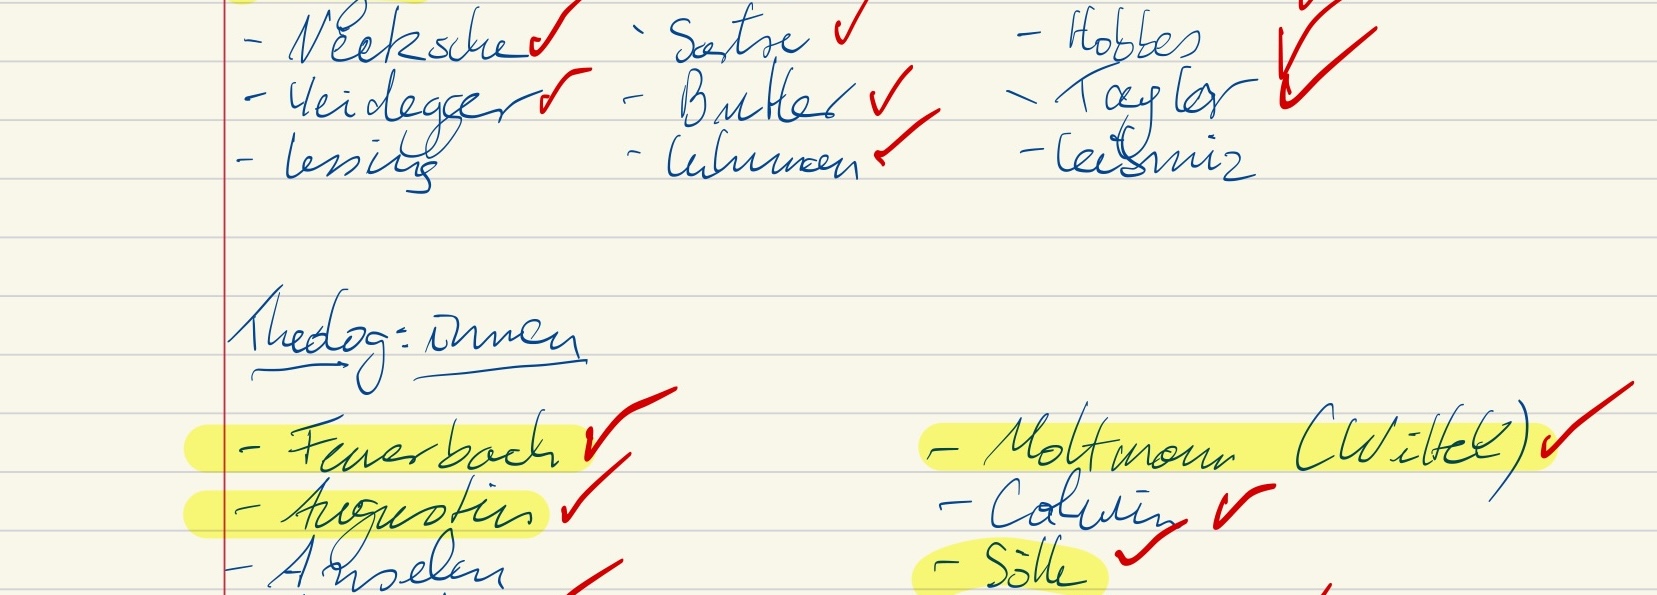 - Nietzsche - Sartre - Hobbes
- Heidegger - Butler - Taylor
- Lessing - Luhmann - Leibniz
Theolog:innen
- Feuerbach - Moltmann
- Augustin - Calvin
- Anselm - Sölle